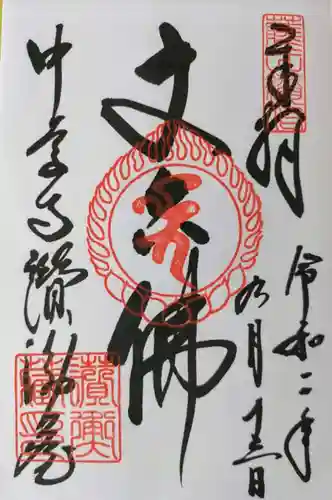 奉拝
令和二年
九月十三日
丈六佛
中尊寺讃衡蔵
讃衡
蔵印